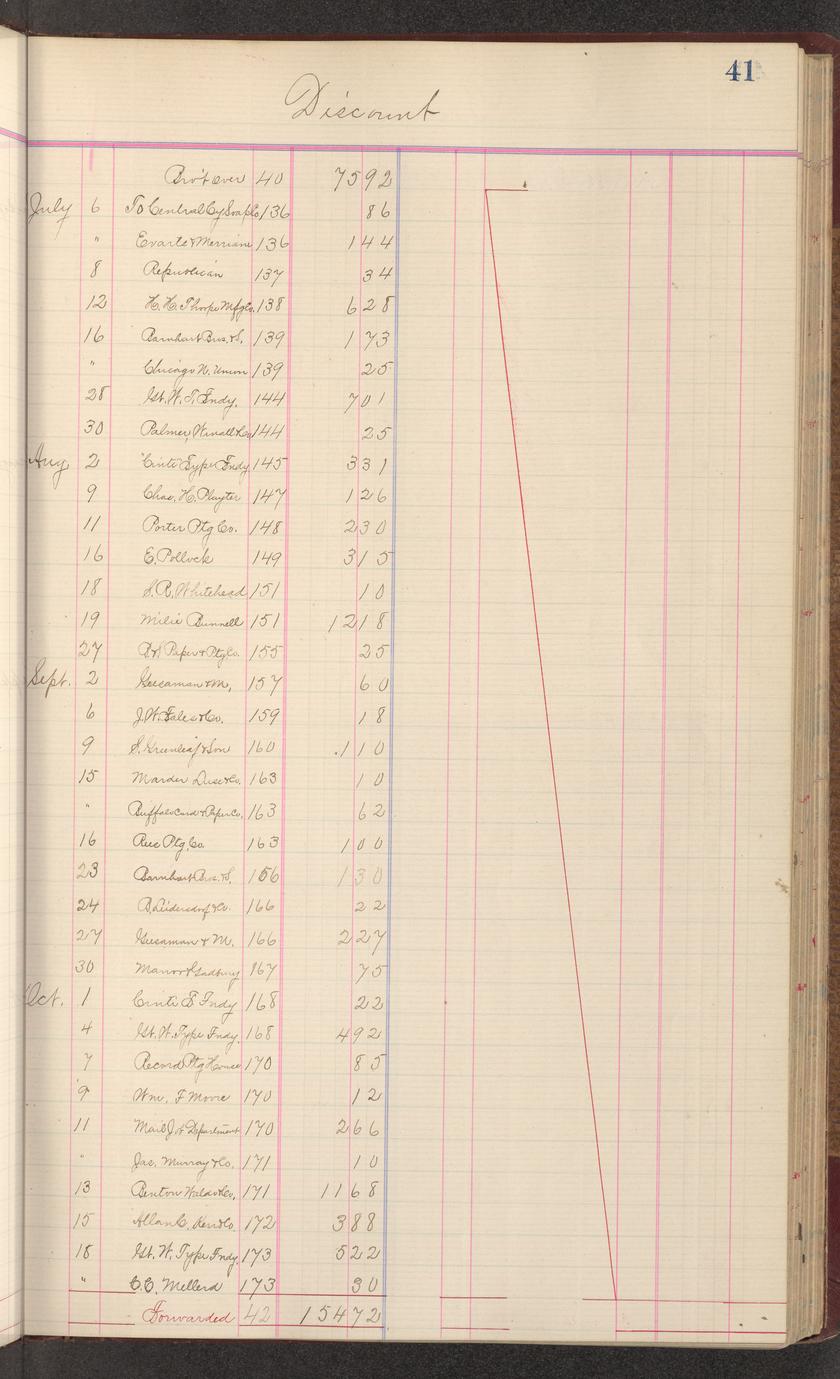 41
Discount
Bro't over 40 75 92
July 6 To Central Cy Soap Co 136 86
" Evarts & Merriam 136 1 44
8 Republican 137 34
12 H. H. Thorpe Mfg Co. 138 6 28
16 Barnhart Bros. & S. 139 1 73
" Chicago N. Union 139 25
28 Gt. W. T. Fndy. 144 7 01
30 Palmer, & Co 144 25
Aug 2 Cinti Type Fndy 145 3 31
9 Chas. H. 147 1 26
11 Porter Ptg Co. 148 2 30
16 E. Pollock 149 3 15
18 S. R. Whitehead 151 10
19 Milie Bunnell 151 12 18
27 Paper & Ptg Co. 155 25
Sept. 2 Geesaman & M. 157 60
6 J. W. Fales & Co. 159 18
9 S. Greenleaf & Son 160 1 10
15 Marder Luse & Co. 163 10
" Buffalo Card & Paper Co. 163 62
16 Ptg. Co. 163 1 00
23 Barnhart Bros. & S. 166 1 30
24 B. Leidersdorf & Co. 166 22
27 Geesaman & M. 166 2 27
30 167 75
Oct. 1 Cinti T Fndy 168 22
4 Gt. W. Type Fndy. 168 4 92
7 Record Ptg House 170 85
9 Wm. F Moore 170 12
11 Mail Department 170 2 66
" Jas. Murray & Co. 171 10
13 Benton Waldo & Co. 171 11 68
15 Allan C. Kerr & Co. 172 3 88
18 Gt. W. Type Fndy. 173 5 22
" C. C. Mellerd 173 30
Forwarded 42 154 72